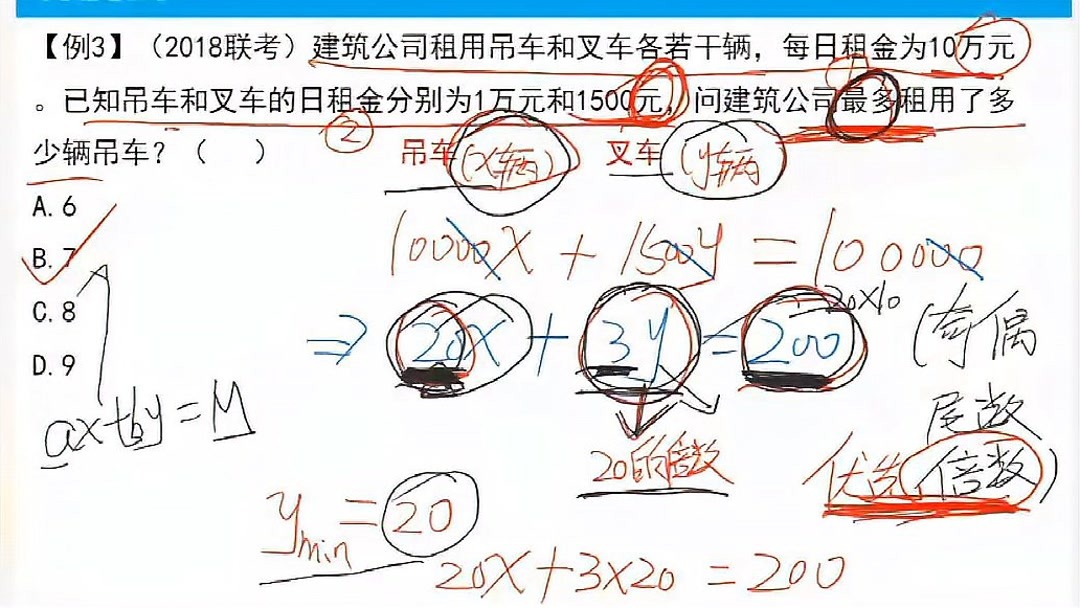 【例3】（2018联考）建筑公司租用吊车和叉车各若干辆，每日租金为10万元
。已知吊车和叉车的日租金分别为1万元和1500元，问建筑公司最多租用了多
少辆吊车？（ ）
② 吊车(x辆) 叉车(y辆)
A.6
B.7
C.8
D.9
10000x + 1500y = 100000
20×10
⇒ 20x + 3y = 200
(奇偶
尾数
优先倍数)
ax+by=M
20的倍数
ymin = 20
20x+3×20 = 200